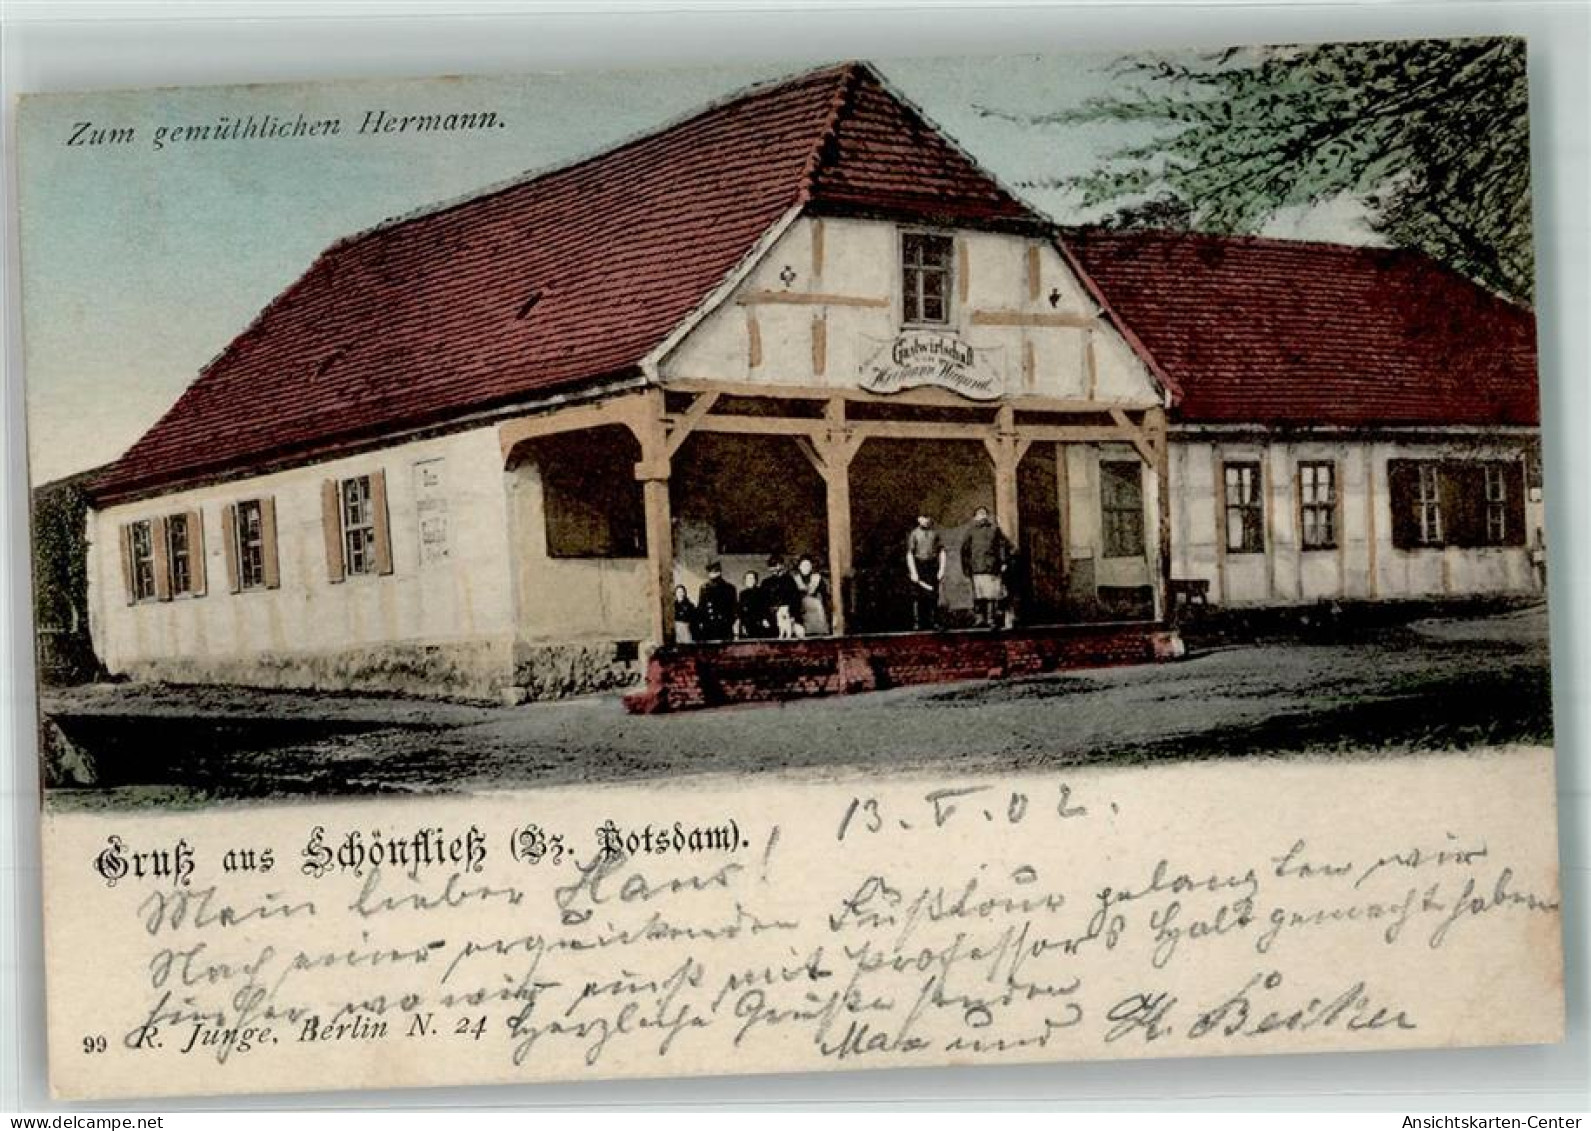 Zum gemüthlichen Hermann.
Gastwirtschaft
von
Hermann Wiegand
Zum
Gruß aus Schönfließ (Bz. Potsdam).
13. V. 02.
Mein lieber Hans!
Nach einer erquickenden Fußtour gelangten wir
hierher, wo wir mit Professors Halt gemacht haben
Herzliche Grüße senden
Max und H. Beiker
99 R. Junge, Berlin N. 24
delcampe.net
Ansichtskarten-Center